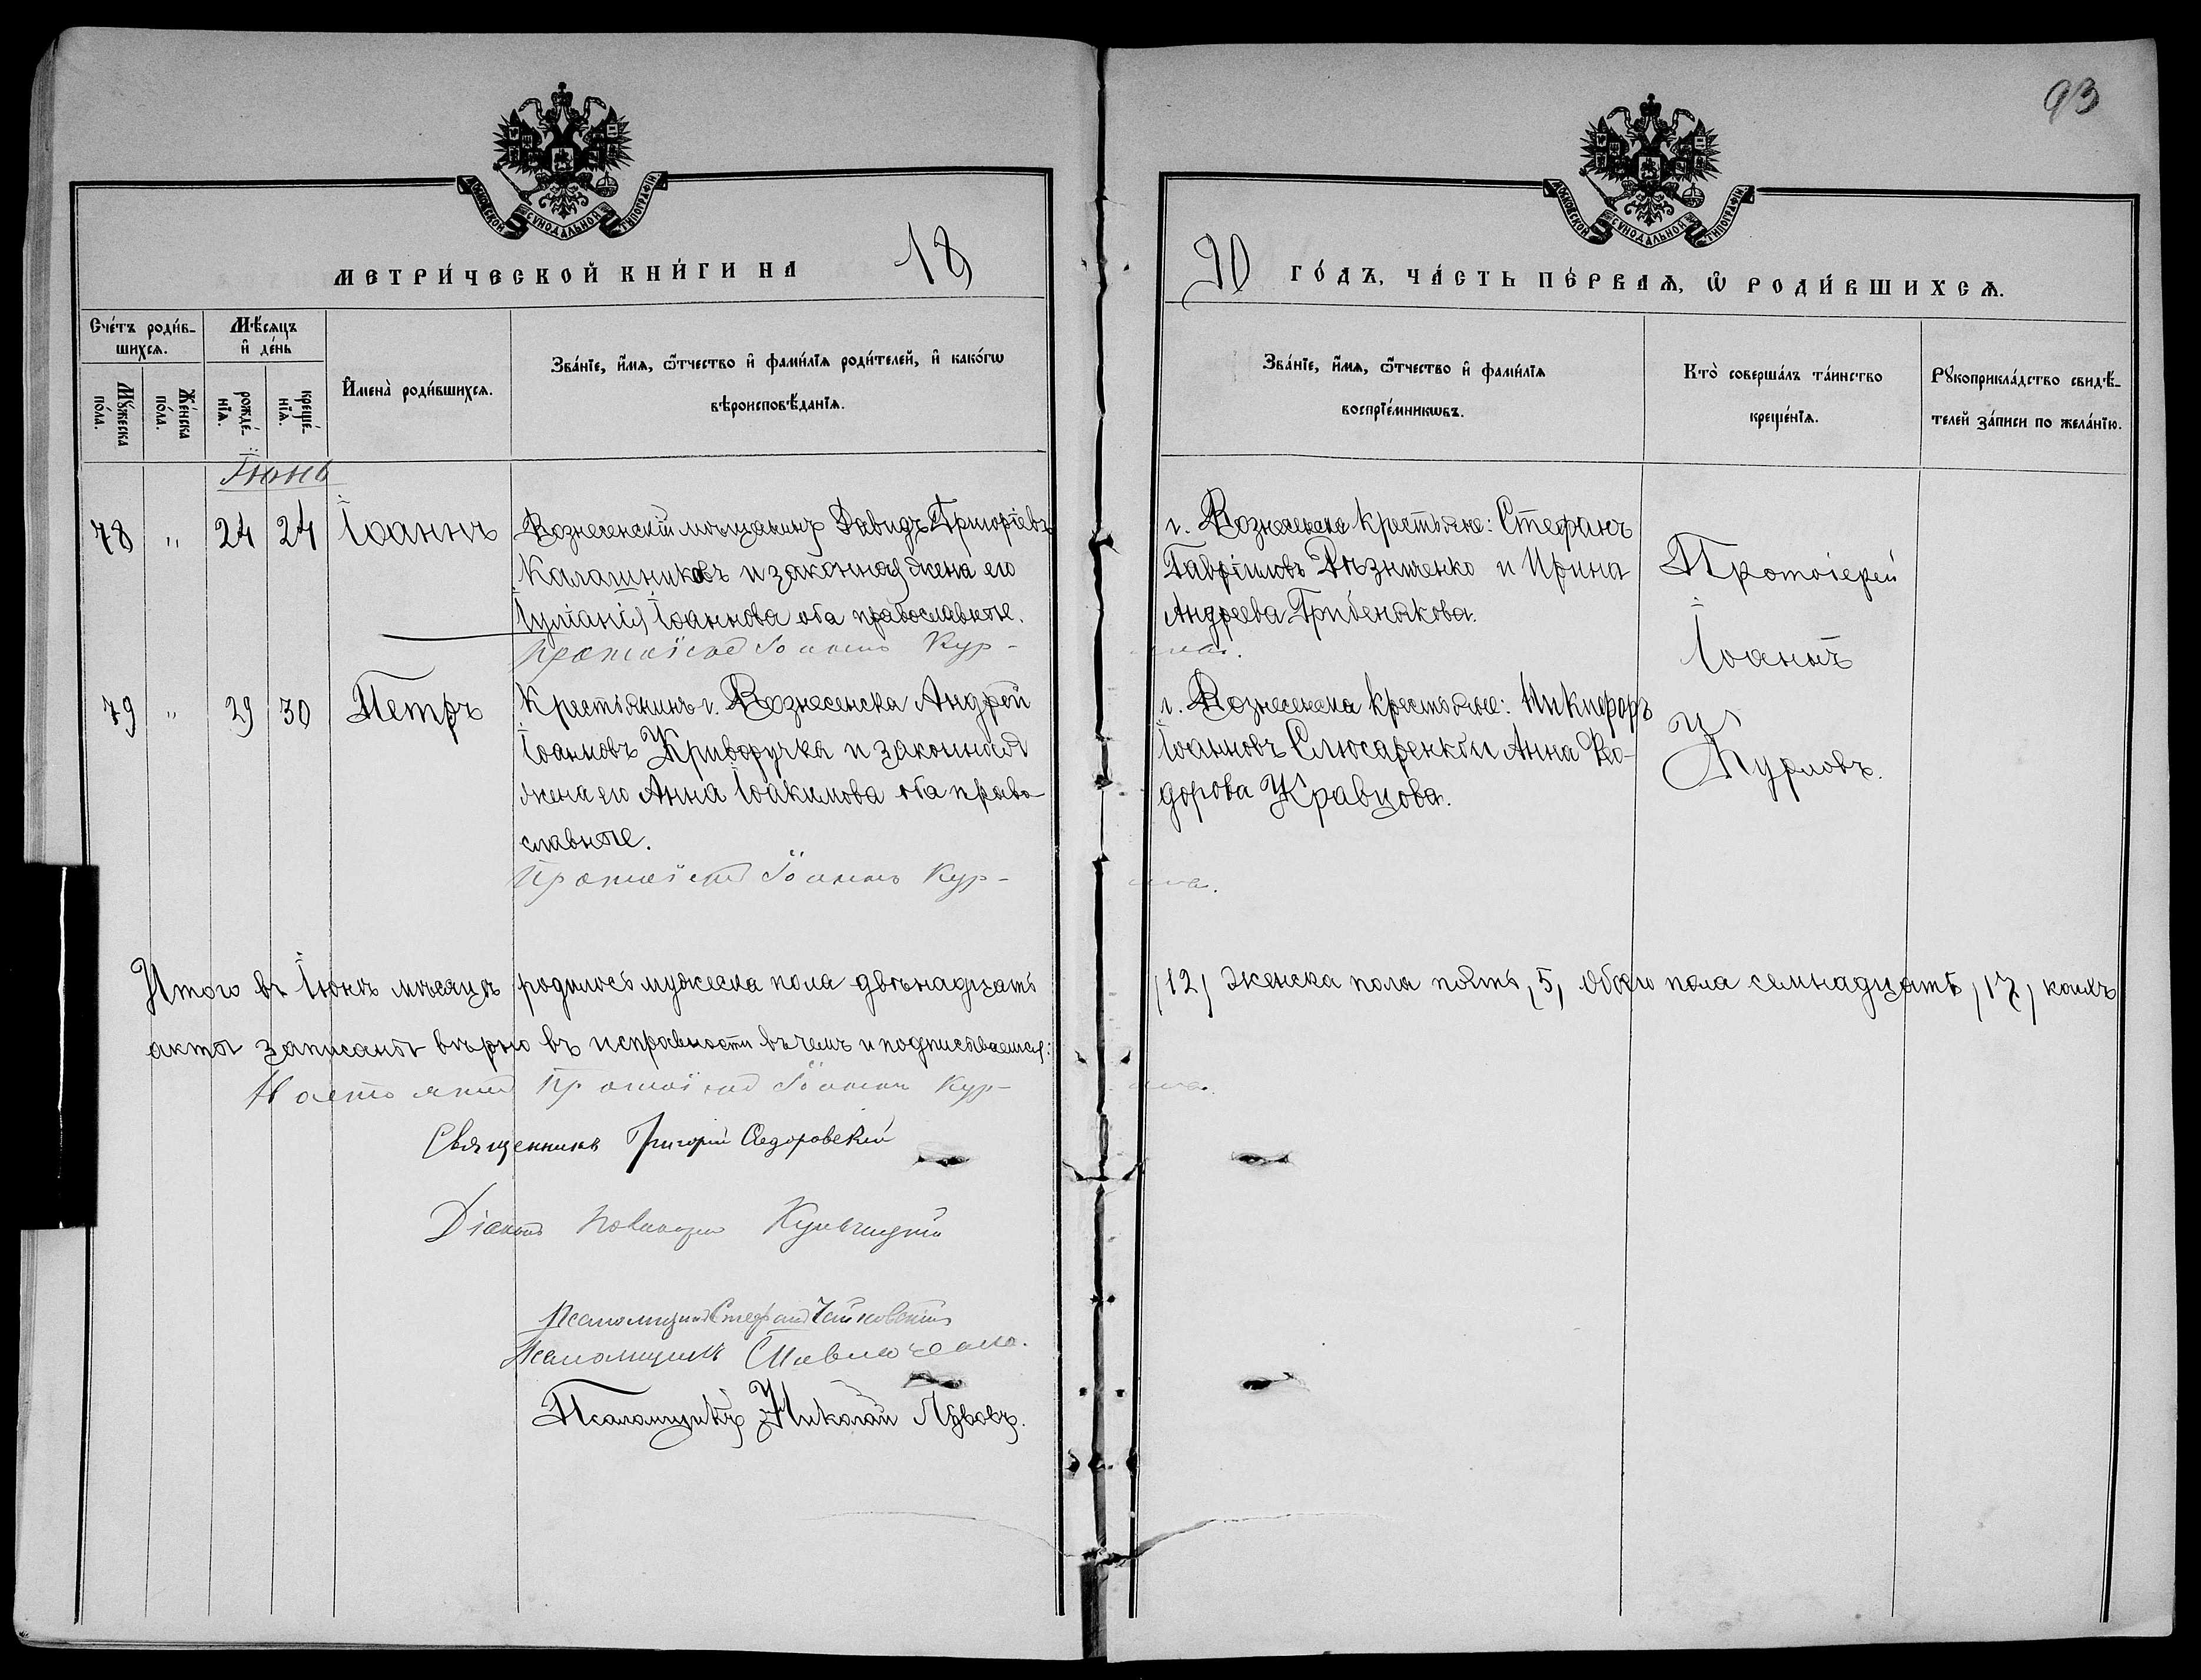 93
МОСКОВСКОЙ СѴНОДАЛЬНОЙ ТИПОГРАФІИ
МОСКОВСКОЙ СѴНОДАЛЬНОЙ ТИПОГРАФІИ
МЕТРИ́ЧЕСКОЙ КНИ́ГИ НА 18
90 ГО́ДЪ, ЧА́СТЬ ПЕ́РВАѦ, Ѡ҆ РОДИ́ВШИХСѦ.
Сче́тъ роди́в-
шихсѧ.
Мꙋ́жеска
по́ла.
Же́нска
по́ла.
Мѣ́сѧцъ
и҆ де́нь
рожде́-
нїѧ.
креще́-
нїѧ.
И҆мена̀ роди́вшихсѧ.
Зва́нїе, и҆́мѧ, ѻ҆́тчество и҆ фами́лїѧ роди́телей, и҆ како́гѡ
вѣроисповѣ́данїѧ.
Зва́нїе, и҆́мѧ, ѻ҆́тчество и҆ фами́лїѧ
воспрїе́мникѡвъ.
Кто̀ соверша́лъ та́инство
креще́нїѧ.
Рꙋкоприкла́дство свидѣ́-
телей за́писи по жела́нїю.
Іюнь
78 " 24 24 Іоаннъ
Вознесенскій мѣщанинъ Давидъ Григоріевъ
Калашниковъ и законная жена его
Іуліанія Іоаннова оба православные.
Протоіерей Іоаннъ Кур-
г. Вознесенска крестьяне: Стефанъ
Гавріиловъ Рѣзниченко и Ирина
Андреева Грибенякова.
79 " 29 30 Петръ
Крестьянинъ г. Вознесенска Андрей
Іоанновъ Криворучка и законная
жена его Анна Іоакимова оба право-
славные.
Протоіерей Іоаннъ Кур-
г. Вознесенска крестьяне: Никифоръ
Іоанновъ Слюсаренко и Анна Ѳео-
дорова Кравцова.
Протоіерей
Іоаннъ
Курловъ.
Итого въ Іюнѣ мѣсяцѣ родилось мужеска пола двѣнадцать (12) женска пола пять (5) обоего пола семнадцать (17) коихъ
акты записаны вѣрно въ исправности въ чемъ и подписываемся:
Настоятель Протоіерей Іоаннъ Кур-
Священникъ Григорій Ѳедоровскій
Діаконъ Кульчицкій
Псаломщикъ Стефанъ Чайковскій
Псаломщикъ
Псаломщикъ Николай Львовъ.